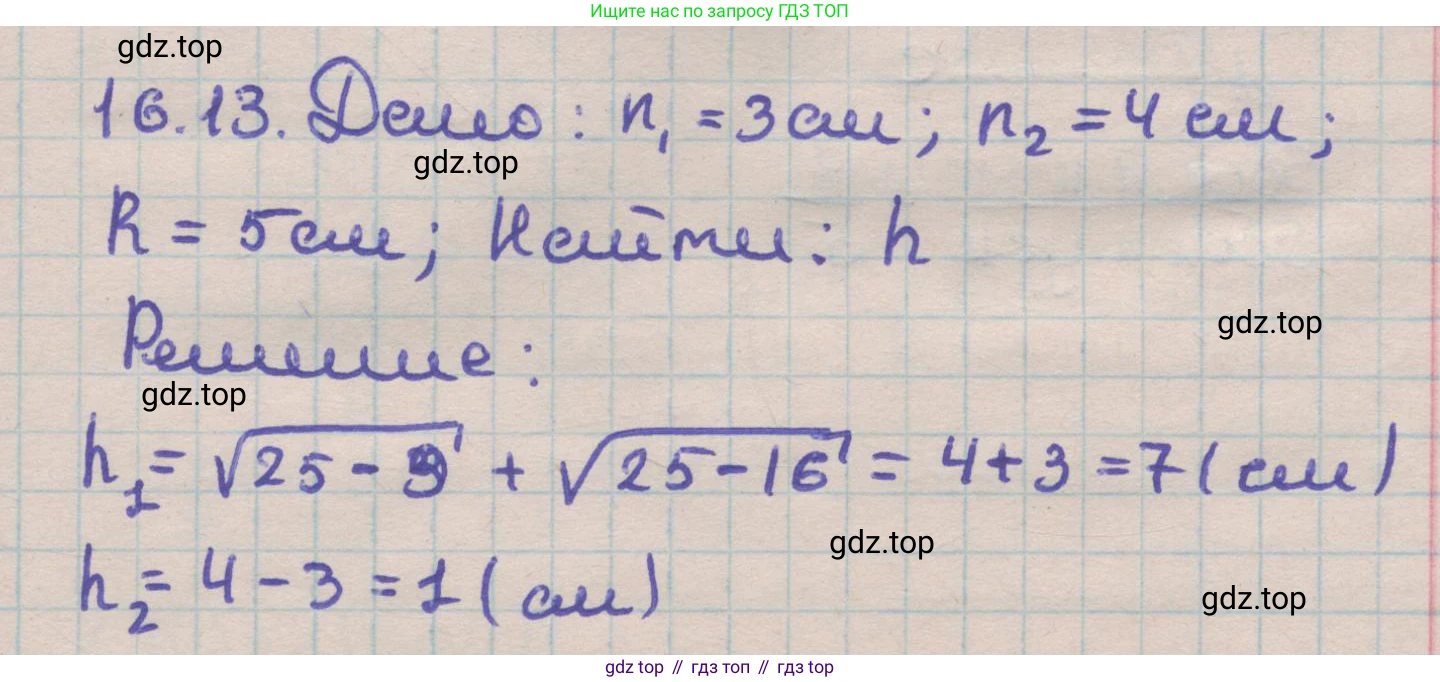 Ищите нас по запросу ГДЗ ТОП
gdz.top
16.13. Дано: r₁ = 3 см; r₂ = 4 см;
gdz.top
R = 5 см; Найти: h
gdz.top
Решение:
gdz.top
h₁ = √25 - 9 + √25 - 16 = 4 + 3 = 7 (см)
gdz.top
h₂ = 4 - 3 = 1 (см)
gdz.top
gdz top // гдз топ // gdz top